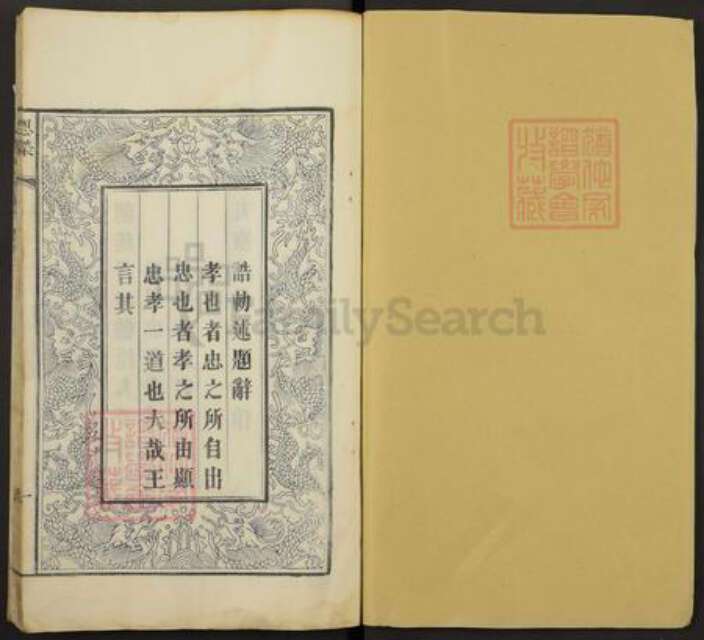 誥勅述題辭
孝也者忠之所自出
忠也者孝之所由顯
忠孝一道也大哉王
言其
FamilySearch
猶他家
譜學會
特藏
恩榮